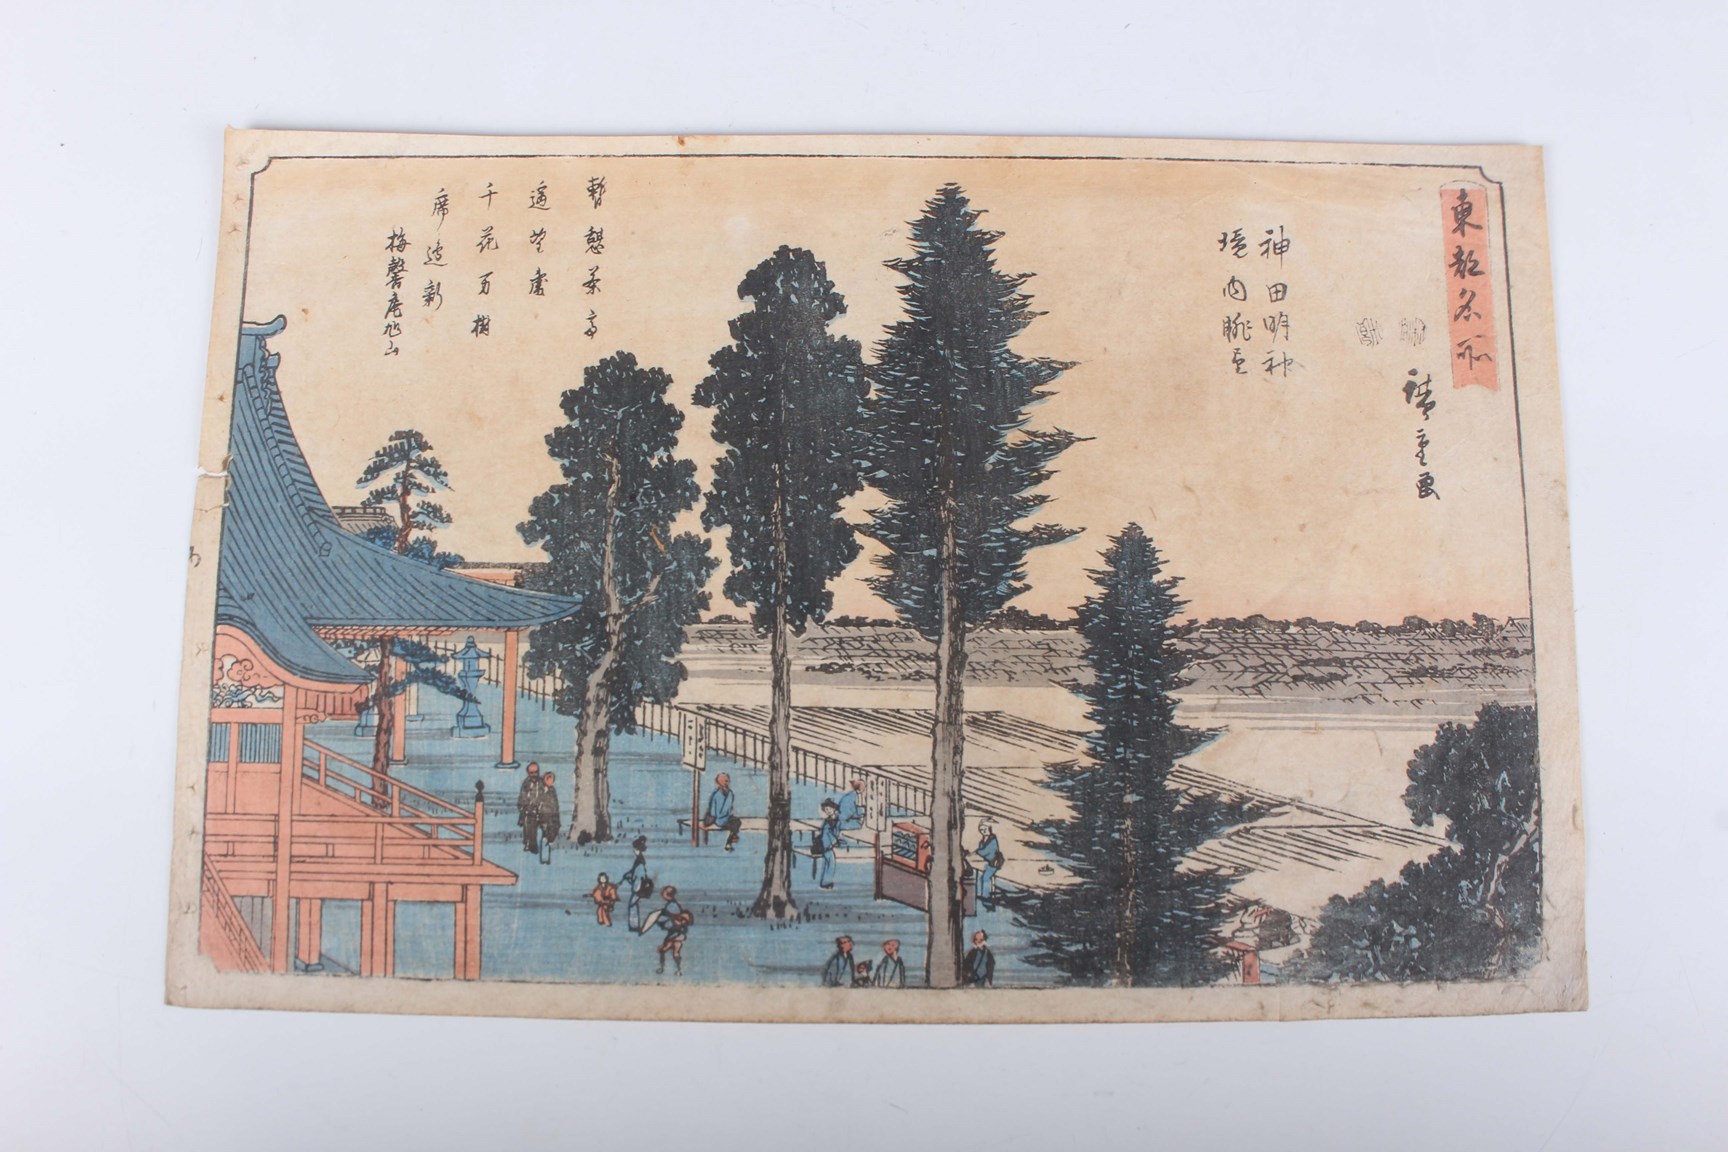 東都名所
廣重画
神田明神
境内眺望
暫憩茶亭
遥望處
千花万樹
席邊新
梅馨庵旭山